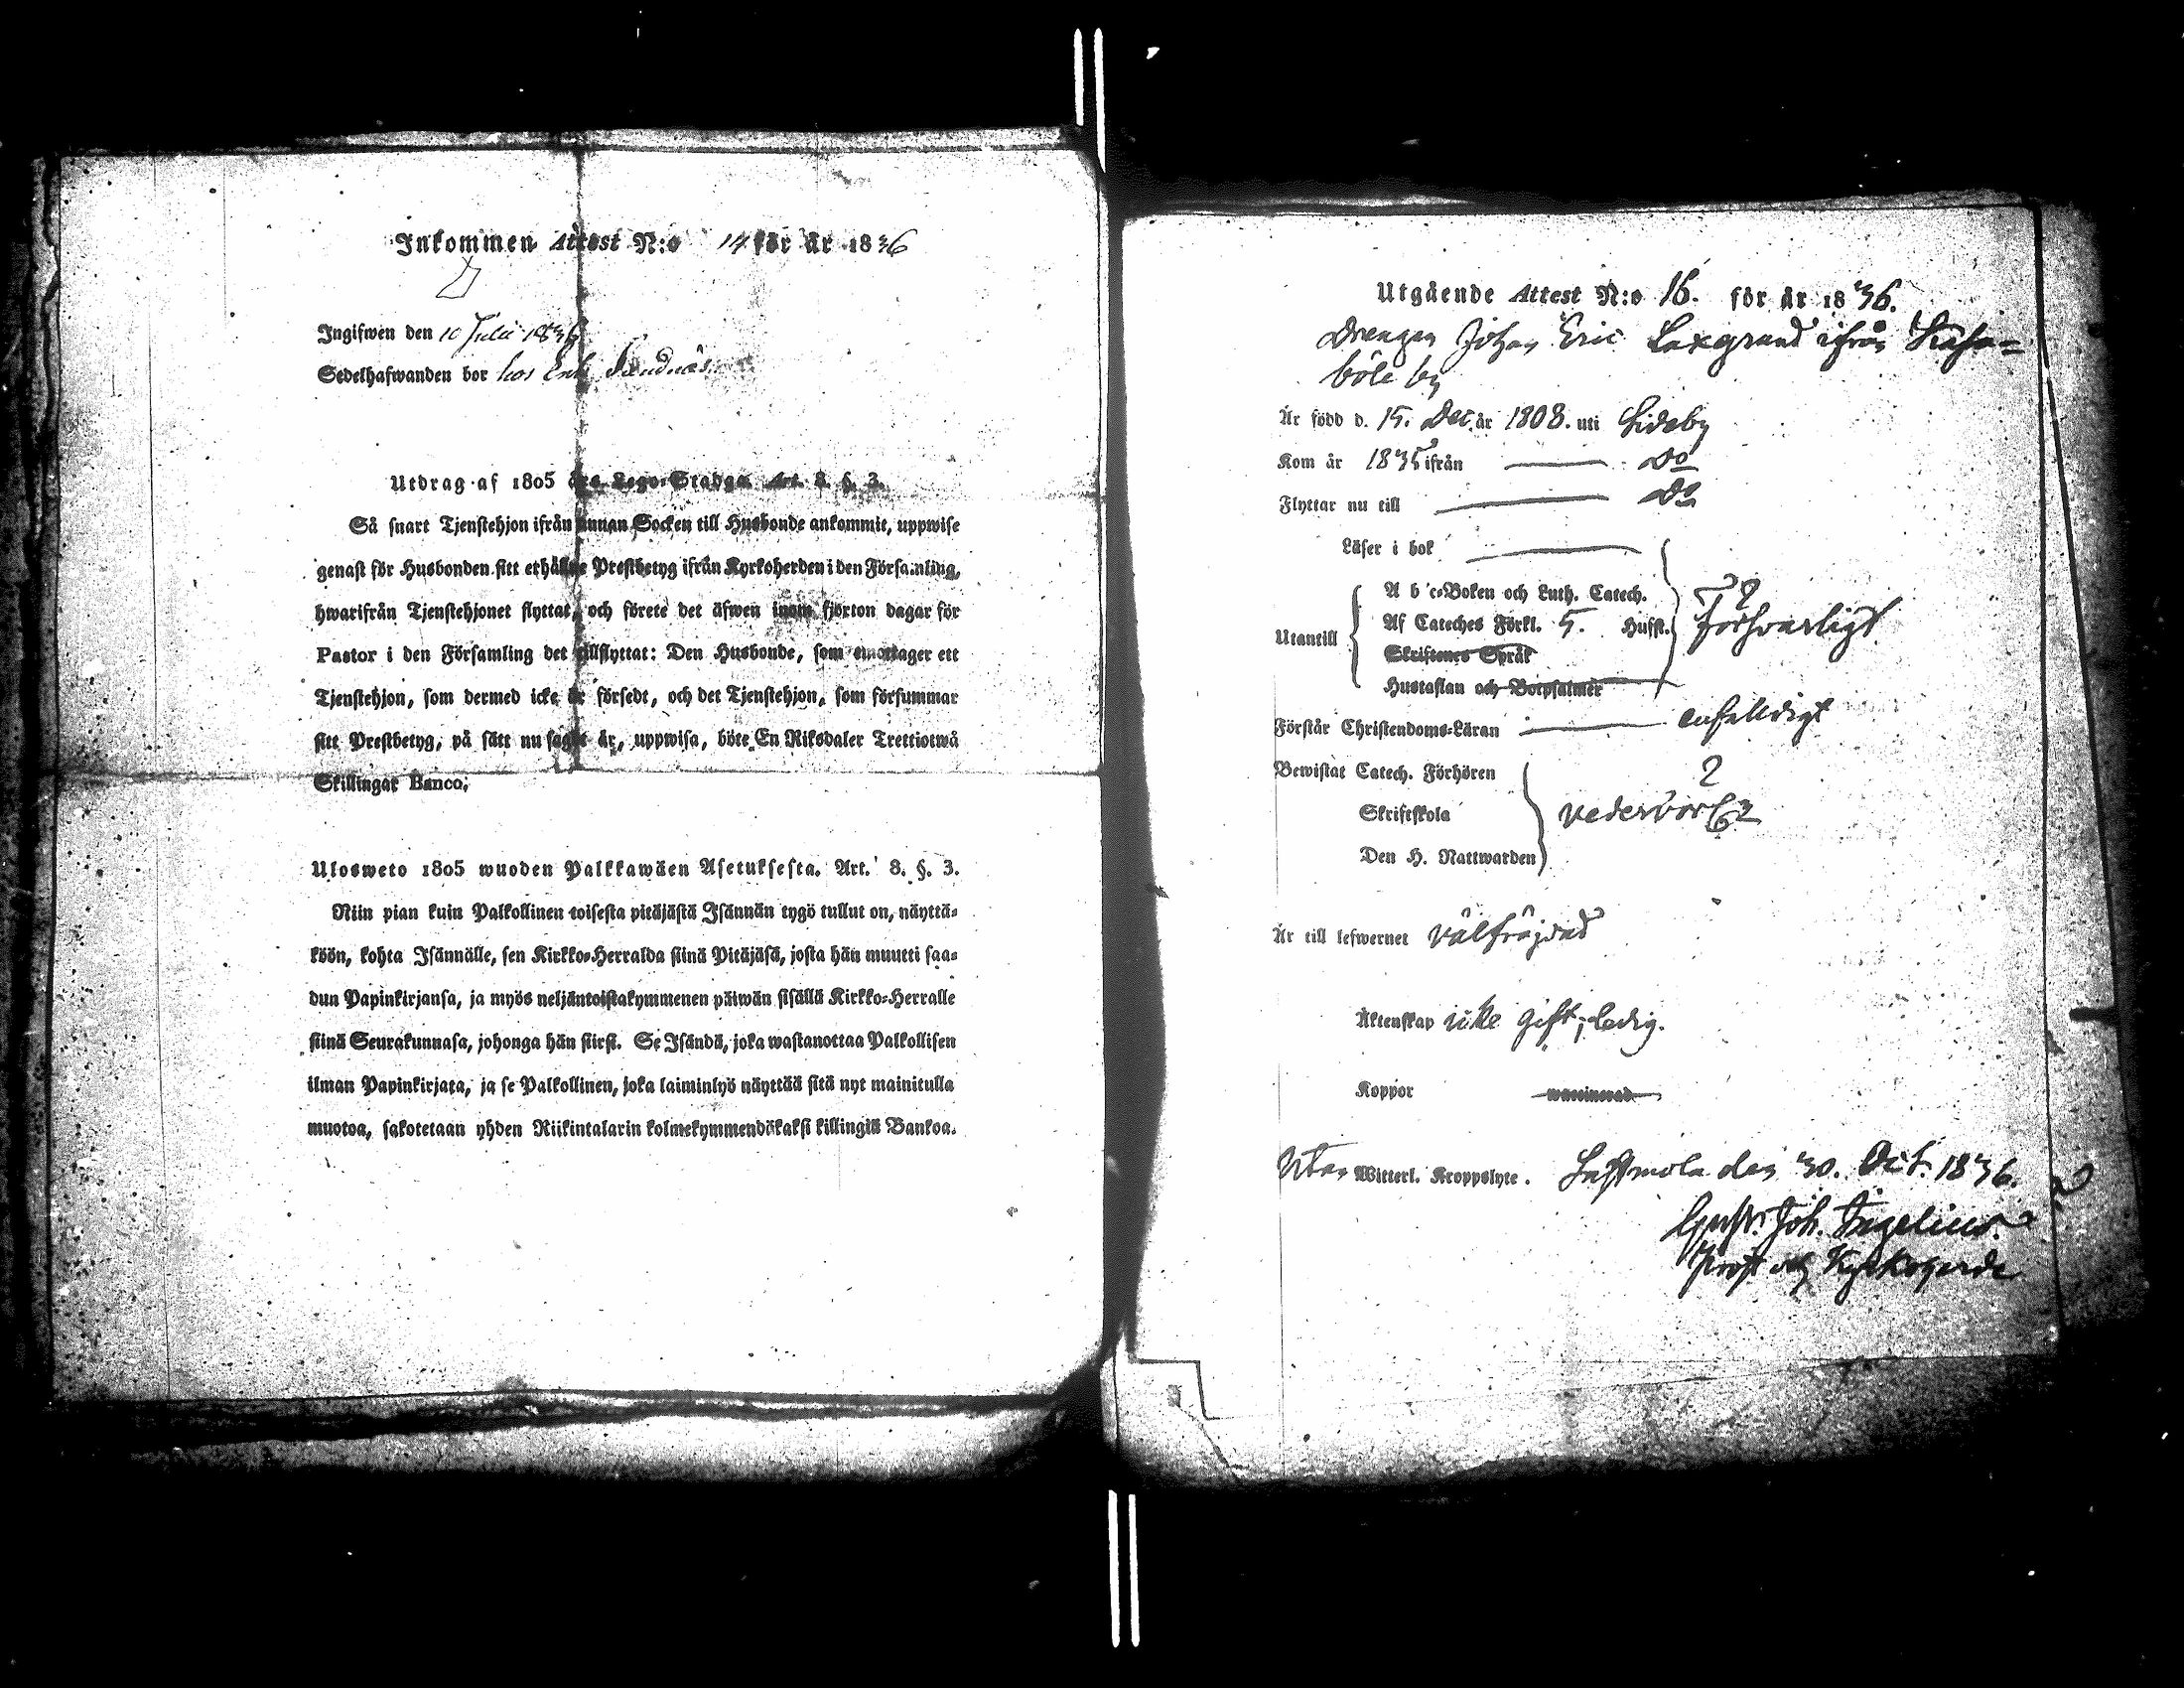 Inkommen Attest N:o 14 för år 1836
Ingifwen den 10 Julii 1836
Sedelhafwanden bor hos Enk Sandnäs
Utdrag af 1805 års Lego-Stadga. Art. 8. §. 3.
Så snart Tjenstehjon ifrån annan Socken till Husbonde ankommit, uppwise
genast för Husbonden sitt erhållne Prestbetyg ifrån Kyrkoherden i den Församling,
hwarifrån Tjenstehjonet flyttat, och förete det äfwen inom fjorton dagar för
Pastor i den Församling det tillflyttat: Den Husbonde, som emottager ett
Tjenstehjon, som dermed icke är försedt, och det Tjenstehjon, som försummar
sitt Prestbetyg, på sätt nu sagdt är, uppwisa, böte En Riksdaler Trettiotwå
Skillingar Banco.
Ulosweto 1805 wuoden Palkkawäen Asetuksesta. Art. 8. §. 3.
Niin pian kuin Palkollinen toisesta pitäjästä Isännän tygö tullut on, näyttä-
köön, kohta Isännälle, sen Kirkko-Herralda siinä Pitäjäsä, josta hän muutti saa-
dun Papinkirjansa, ja myös neljäntoistakymmenen päiwän sisällä Kirkko-Herralle
siinä Seurakunnasa, johonga hän siirsi. Se Isändä, joka wastanottaa Palkollisen
ilman Papinkirjata, ja se Palkollinen, joka laiminlyö näyttää sitä nyt mainitulla
muotoa, sakotetaan yhden Riikintalarin kolmekymmendökaksi killingiä Bankoa.
Utgående Attest N:o 16. för år 1836.
Drengen Johan Eric Laxgrund ifrån
böle by
Är född d. 15. Dec. år 1808. uti Sideby
Kom år 1835 ifrån Do
Flyttar nu till Do
Läser i bok
A b c-Boken och Luth. Catech.
Af Cateches Förkl. 5. Hufst. Försvarligt
Utantill
Skriftenes Språk
Hustaflan och Botpsalmer
Förstår Christendoms-Läran enfaldigt
Bewistat Catech. Förhören
Skriftskola vederbörl.
Den H. Nattwarden
Är till lefwernet välfräjdad
Äktenskap icke gift; ledig.
Koppor waccinerad
Utan Witterl. Kroppslyte. Lappfjärd den 30. Oct. 1836.
Joh.
Prost och Kyrkoherde